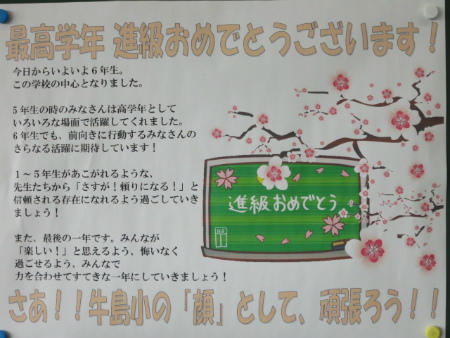 最高学年 進級おめでとうございます！
今日からいよいよ６年生。
この学校の中心となりました。
５年生の時のみなさんは高学年として
いろいろな場面で活躍してくれました。
６年生でも、前向きに行動するみなさんの
さらなる活躍に期待しています！
１～５年生があこがれるような、
先生たちから「さすが！頼りになる！」と
信頼される存在になれるよう過ごしていき
ましょう！
また、最後の一年です。みんなが
「楽しい！」と思えるよう、悔いなく
過ごせるよう、みんなで
力を合わせてすてきな一年にしていきましょう！
進級おめでとう
さあ！！牛島小の「顔」として、頑張ろう！！